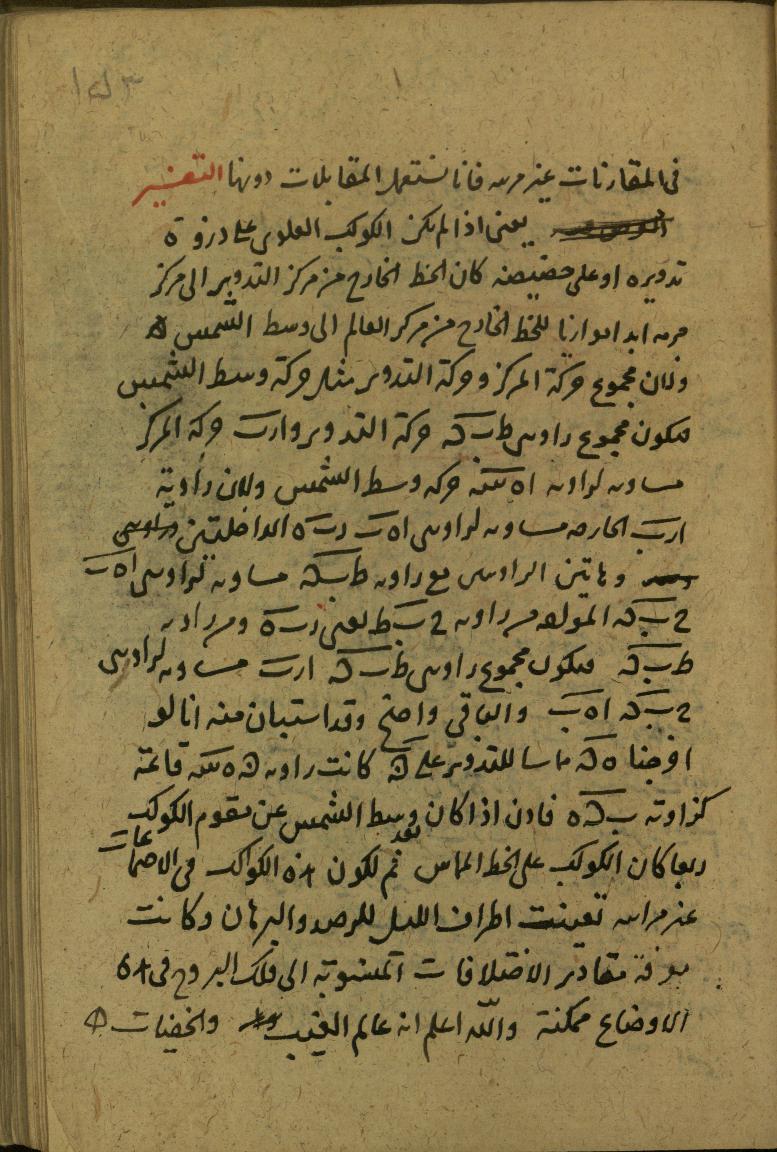 في المقارنات غير مريه فانا نستعمل المقابلات دونها التفسير
يعنى اذا لم يكن الكوكب العلوى على ذروة
تدويره او على حضيضه كان الخط الخارج من مركز التدوير الى مركز
جرمه ابدا موازيا للخط الخارج من مركز العالم الى وسط الشمس
ولان مجموع حركة المركز وحركة التدوير مثل حركة وسط الشمس
فيكون مجموع زاويتى ط ب ك حركة التدوير و ا ر ب حركة المركز
مساويه لزاويه حركه وسط الشمس ولان زاوية
ا ر ب الخارجه مساويه لزاويتى ا ه ب ر ب ه الداخلتين
وهاتين الزاويتين مع زاويه ط ب ك مساويه لزاويتى ا ه ب
ح ب ك المولفه من زاويه ح ب ط يعنى ر ب ه ومن زاويه
ط ب ك فيكون مجموع زاويتى ط ب ك ا ر ب مساويه لزاويتى
ح ب ك ا ه ب والباقى واضح وقد استبان منه انا لو
اخرجنا ه ك مماسا للتدوير على ك كانت زاويه قائمة
كزاوية ب ك ه فاذن اذا كان بعد وسط الشمس عن مقوم الكوكب
ربعا كان الكوكب على الخط المماس ثم لكون هذه الكواكب فى الاجتماعات
غير مرايه تعينت اطراف الليل للرصد والبرهان وكانت
معرفة مقادير الاختلافات المنسوبة الى فلك البروج فى هذه
الاوضاع ممكنة والله اعلم انه عالم الغيب والخفيات